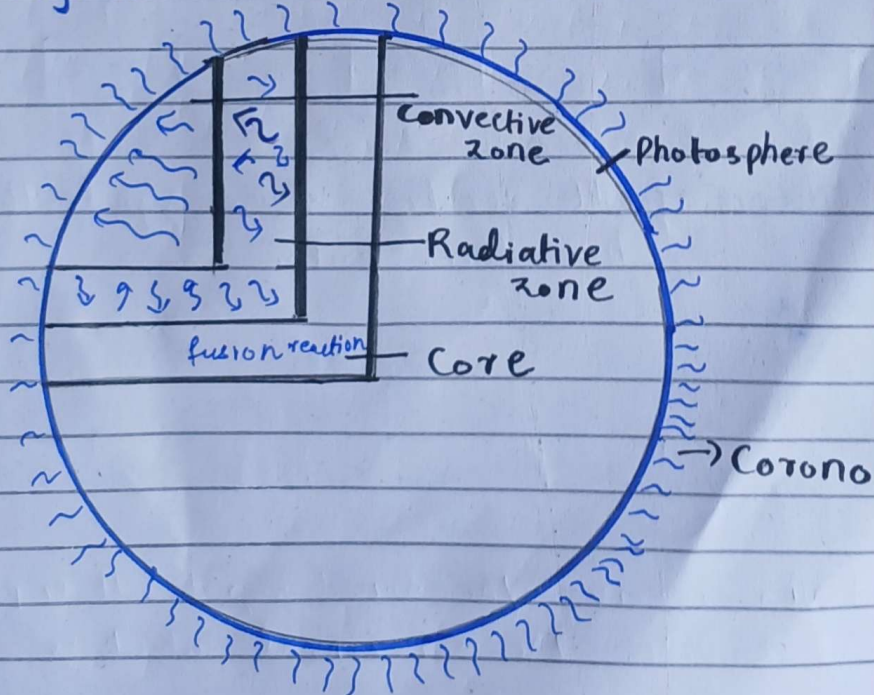 Convective
zone
Photosphere
Radiative
zone
fusion reaction
Core
→ Corono